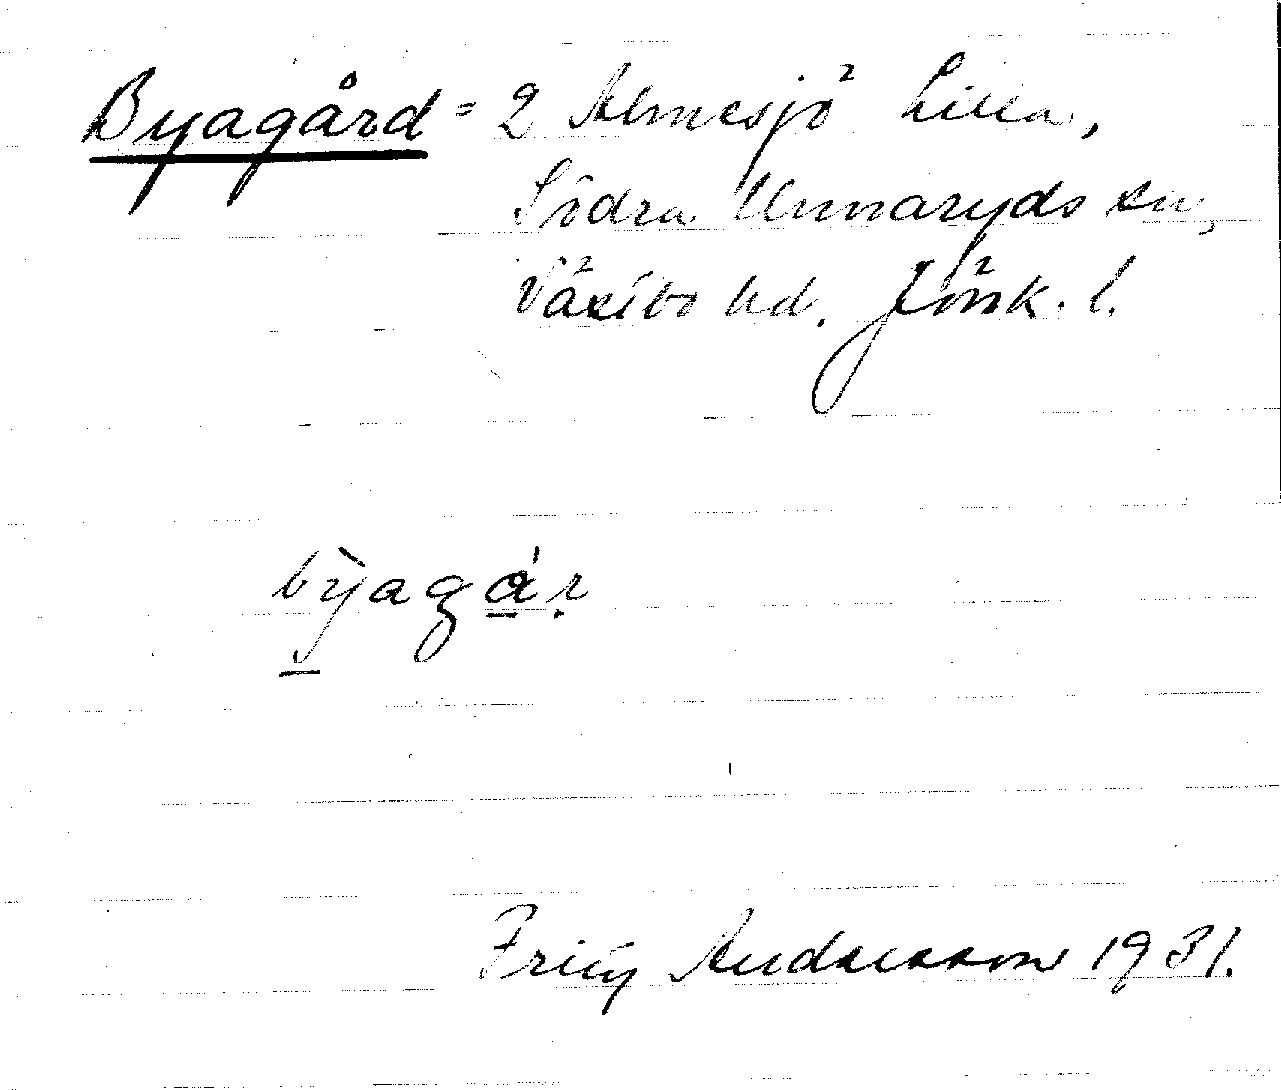 Byagård = 2 Almesjö Lilla,
Södra Unnaryds sn,
Västbo hd. Jönk. l.
bỳagár
Fritz Andersson 1931.